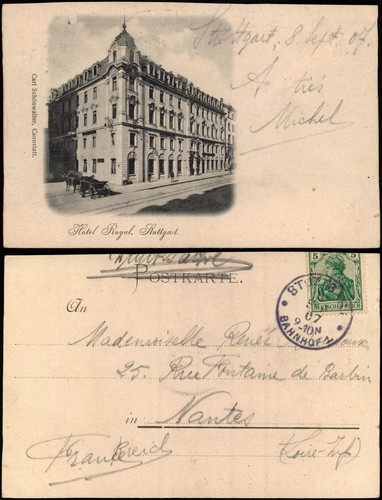 Stuttgart, 8 Sept. 07.
A très
Michel
Carl Schönwalter, Cannstatt.
Hotel Royal, Stuttgart.
POSTKARTE.
An
5
DEUTSCHES REICH
07
9-10N
BAHNHOF
Mademoiselle Renée
25. Rue Fontaine de Barbin
in Nantes
Frankreich (Loire-Inf)